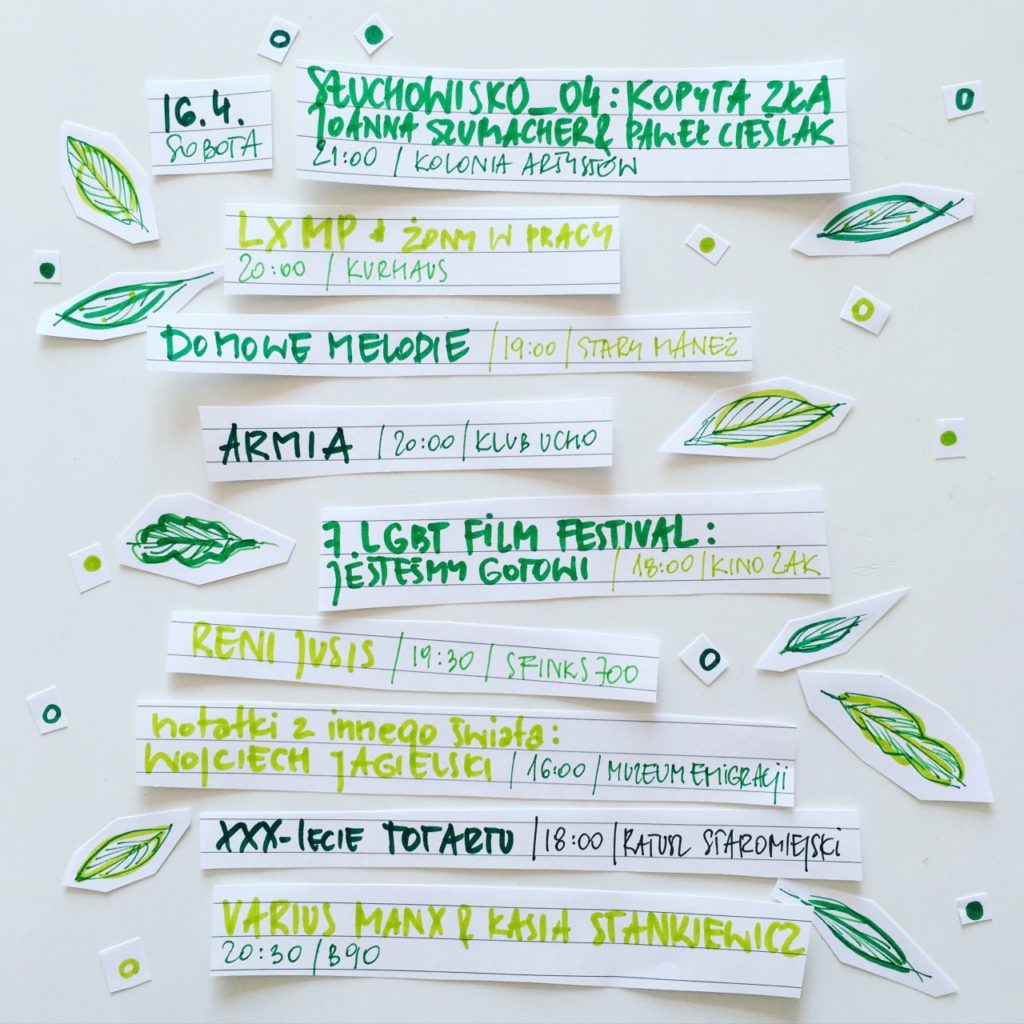 16.4.
SOBOTA
SŁUCHOWISKO_04: KOPYTA ZŁA
JOANNA SZUMACHER & PAWEŁ CIEŚLAK
21:00 / KOLONIA ARTYSTÓW
LXMP + ŻONY W PRACY
20:00 / KURHAUS
DOMOWE MELODIE / 19:00 / STARY MANEŻ
ARMIA / 20:00 / KLUB UCHO
7. LGBT FILM FESTIVAL:
JESTEŚMY GOTOWI / 18:00 / KINO ŻAK
RENI JUSIS / 19:30 / SFINKS700
notatki z innego świata:
WOJCIECH JAGIELSKI / 16:00 / MUZEUM EMIGRACJI
XXX-LECIE TOTARTU / 18:00 / RATUSZ STAROMIEJSKI
VARIUS MANX & KASIA STANKIEWICZ
20:30 / B90